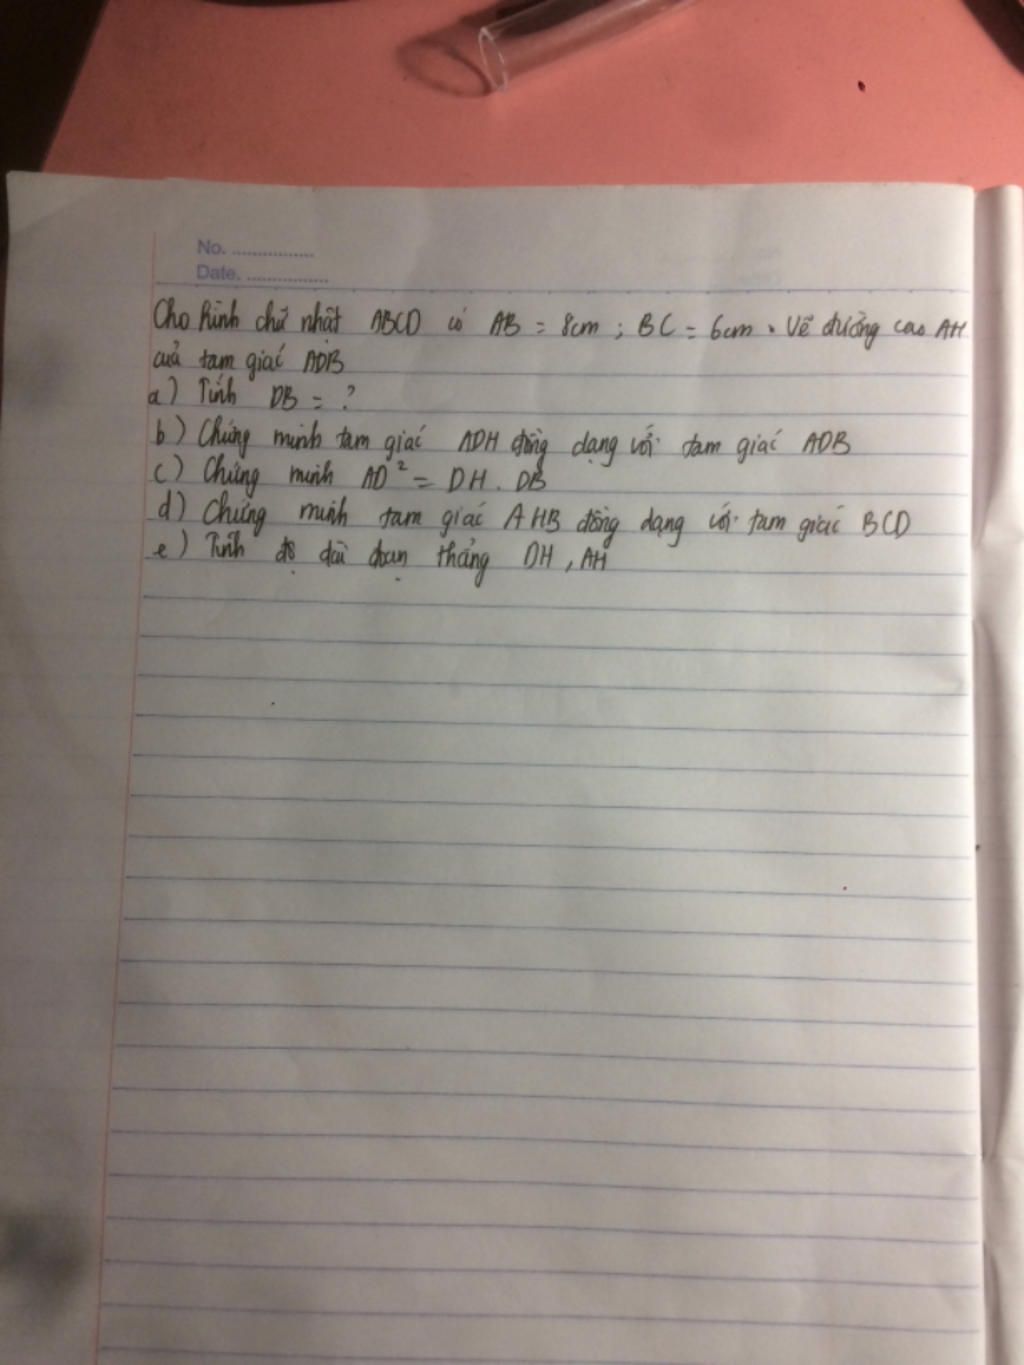 No. ................
Date. ................
Cho hình chữ nhật ABCD có AB = 8cm ; BC = 6cm . Vẽ đường cao AH
của tam giác ADB
a) Tính DB = ?
b) Chứng minh tam giác ADH đồng dạng với tam giác ADB
c) Chứng minh AD² = DH . DB
d) Chứng minh tam giác AHB đồng dạng với tam giác BCD
e) Tính độ dài đoạn thẳng DH , AH